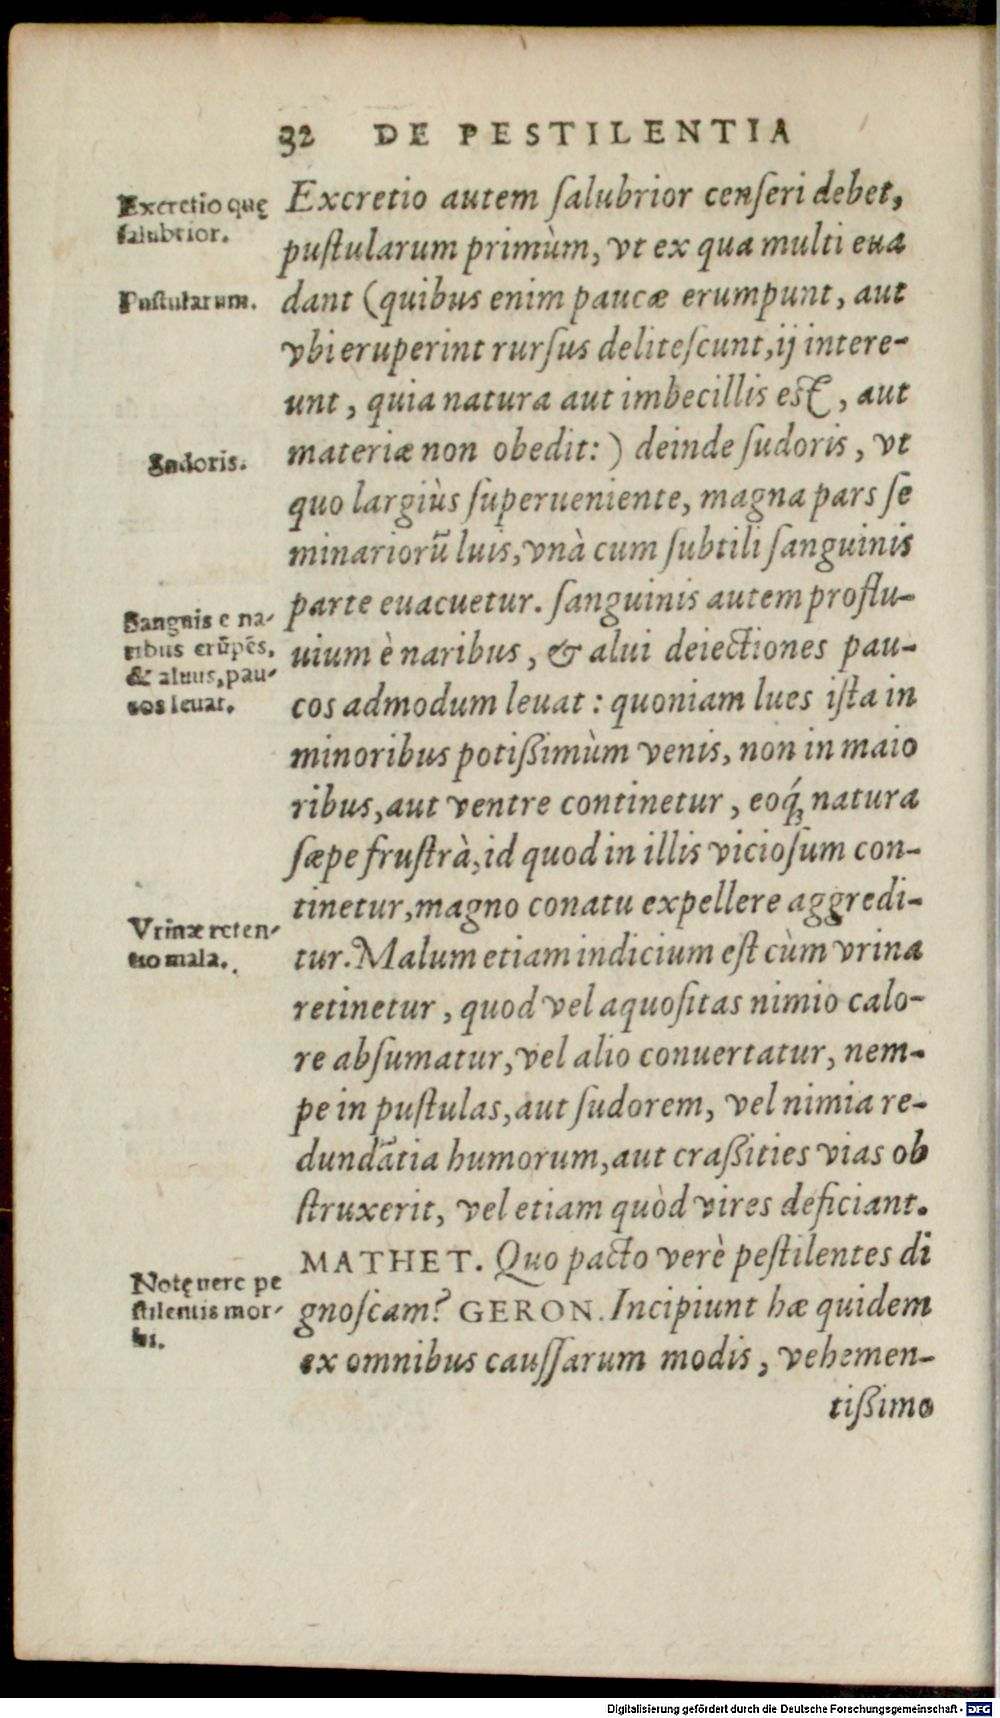 32 DE PESTILENTIA
Excretio quę
salubrior.
Excretio autem ſalubrior cenſeri debet,
puſtularum primùm, vt ex qua multi eua
Puſtularum.
dant (quibus enim paucæ erumpunt, aut
vbi eruperint rurſus deliteſcunt, ij intere-
unt, quia natura aut imbecillis est, aut
Sudoris.
materiæ non obedit:) deinde ſudoris, vt
quo largiùs ſuperueniente, magna pars ſe
minariorũ luis, vnà cum ſubtili ſanguinis
parte euacuetur. ſanguinis autem proflu-
Sanguis e na-
ribus erũpẽs,
& aluus, pau-
cos leuat.
uium è naribus, & alui deiectiones pau-
cos admodum leuat: quoniam lues iſta in
minoribus potißimùm venis, non in maio
ribus, aut ventre continetur, eoq́; natura
ſæpe fruſtrà, id quod in illis vicioſum con-
tinetur, magno conatu expellere aggredi-
Vrinæ reten-
tio mala.
tur. Malum etiam indicium eſt cùm vrina
retinetur, quod vel aquoſitas nimio calo-
re abſumatur, vel alio conuertatur, nem-
pe in puſtulas, aut ſudorem, vel nimia re-
dundãtia humorum, aut craßities vias ob
ſtruxerit, vel etiam quòd vires deficiant.
MATHET. Quo pacto verè peſtilentes di
Notę vere pe
ſtilentis mor-
bi.
gnoſcam? GERON. Incipiunt hæ quidem
ex omnibus cauſſarum modis, vehemen-
tißimo
Digitalisierung gefördert durch die Deutsche Forschungsgemeinschaft - DFG